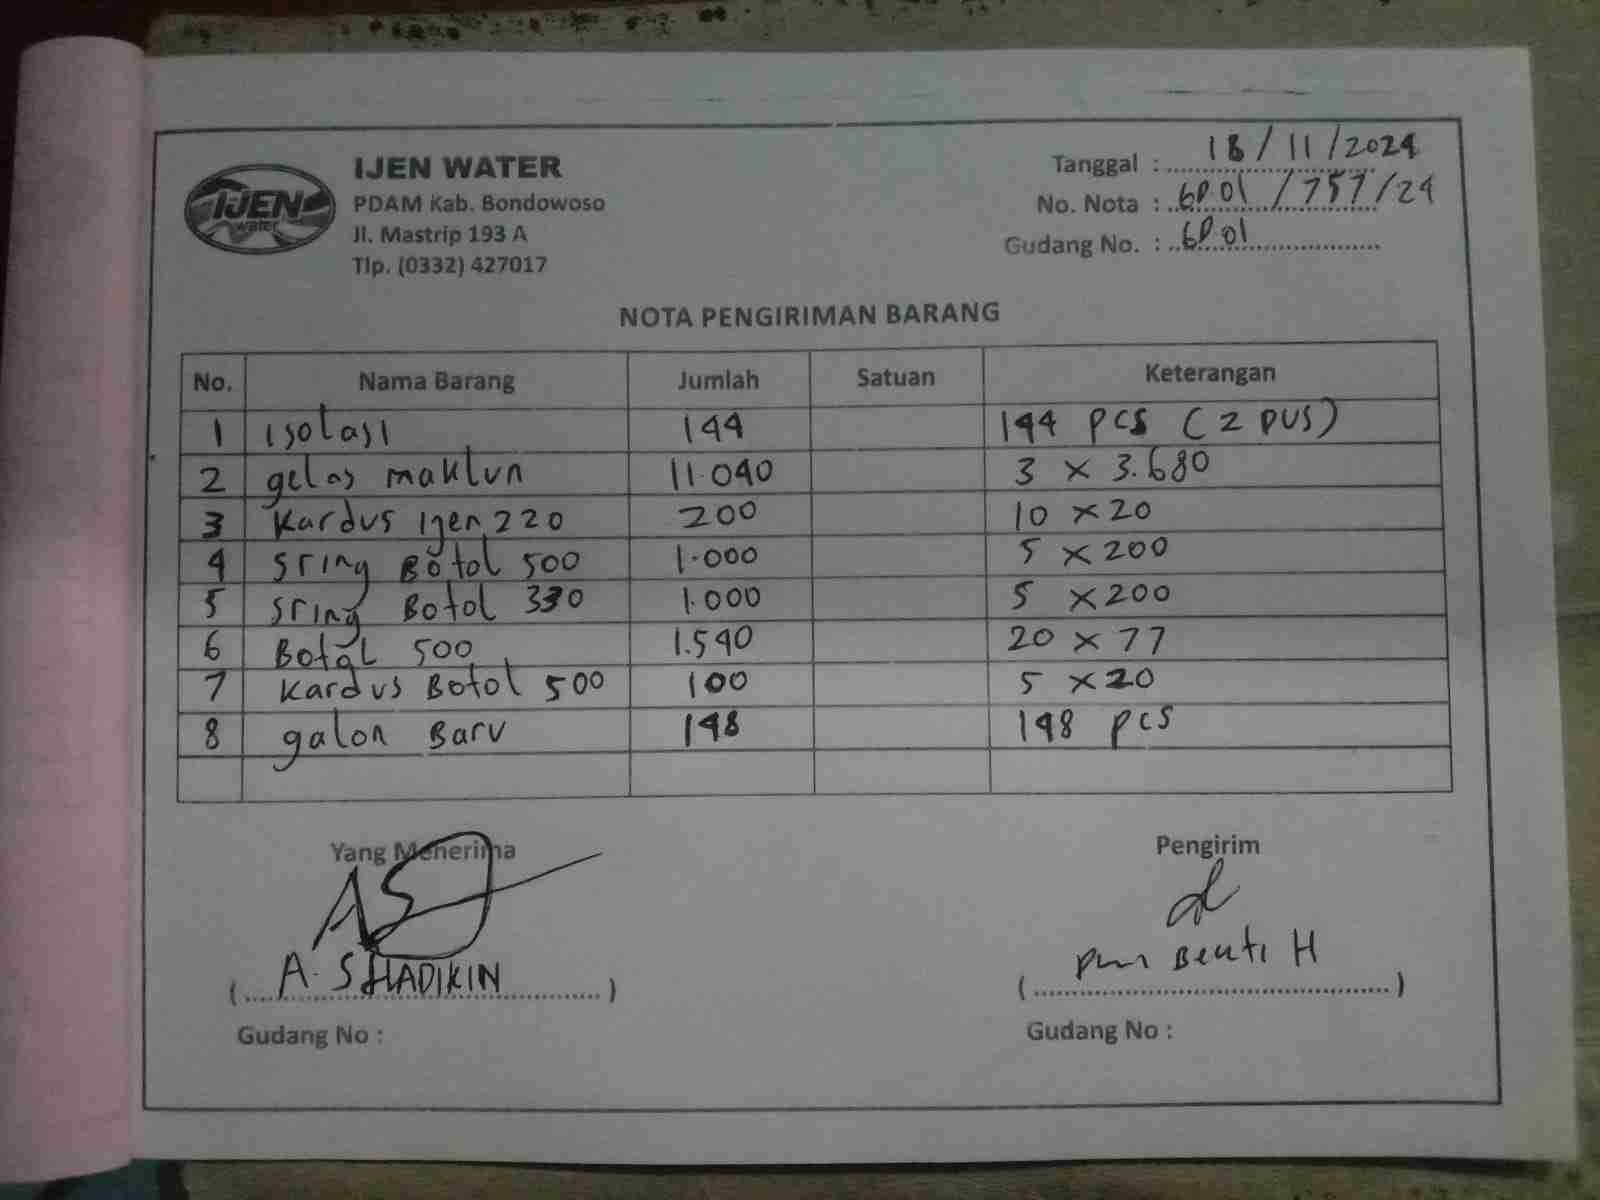 IJEN
water
IJEN WATER
PDAM Kab. Bondowoso
Jl. Mastrip 193 A
Tlp. (0332) 427017
Tanggal : 18/11/2024
No. Nota : 6D.01/757/24
Gudang No. : 6D.01
NOTA PENGIRIMAN BARANG
No. Nama Barang Jumlah Satuan Keterangan
1 isolasi 144 144 pcs (2 DUS)
2 gelas maklun 11.040 3 x 3.680
3 Kardus Ijen 220 200 10 x 20
4 sring Botol 500 1.000 5 x 200
5 sring Botol 330 1.000 5 x 200
6 Botol 500 1.540 20 x 77
7 Kardus Botol 500 100 5 x 20
8 galon Baru 148 148 pcs
Yang Menerima Pengirim
(A. SHADIKIN) ( H)
Gudang No : Gudang No :